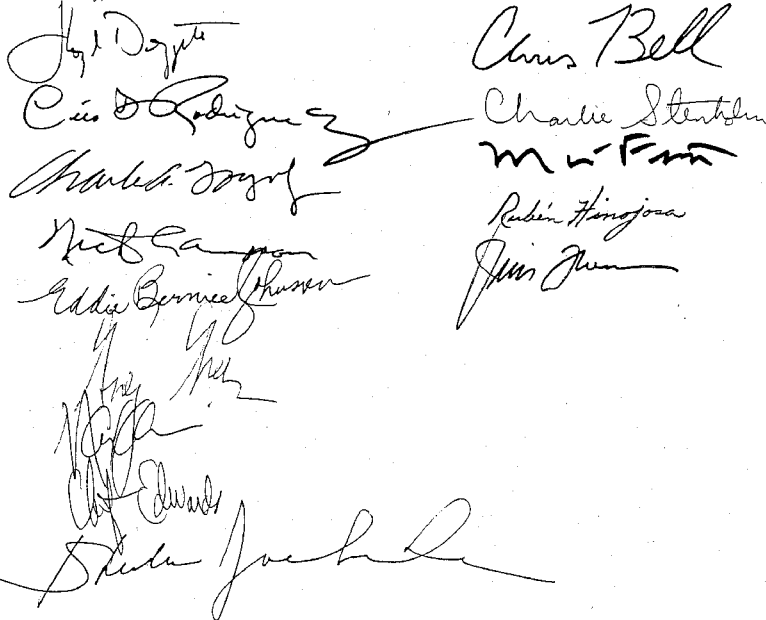 Lloyd Doggett
Ciro D. Rodriguez
Charles A.
Nick Lampson
Eddie Bernice Johnson
Chet Edwards
Sheila Jackson Lee
Chris Bell
Charlie Stenholm
Martin Frost
Rubén Hinojosa
Jim Turner